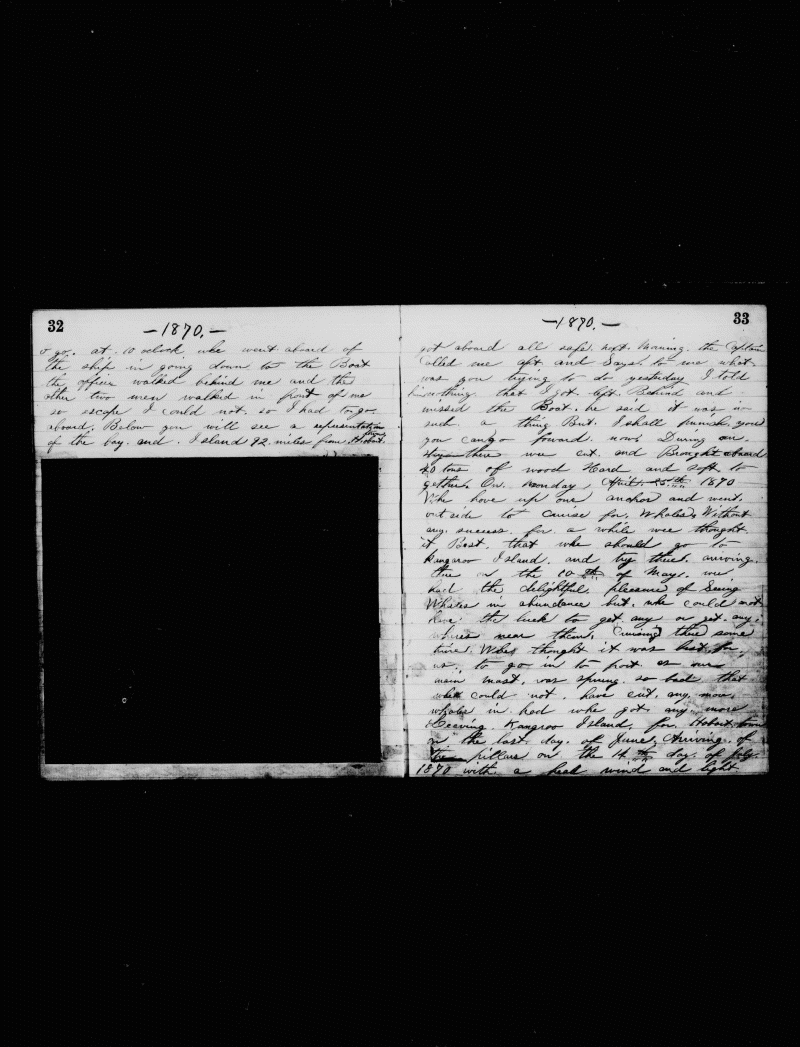 32
—1870.—
o go. at 10 oclock whe went aboard of
the ship in going down to the Boat
the officer walked behind me and the
other two men walked in front of me
so escape I could not. so I had to go
aboard. Below you will see a representation
of the bay. and Island 72 miles from Hobart.
33
—1870.—
got aboard all safe. next. Morning. the Captain
Called me aft and Says. to me what
was you trying to do yesterday I told
him nothing. that I got left Behind and
missed the Boat. he said it was no
such a thing But. I shall punish you
you can go foward. now During our
stay there wee cut. and Brought aboard
40 tons of wood Hard and soft to
gether. On. Monday, April. 25th 1870
Whe hove up our anchor and went.
outside to Cruise for. Whales Without
any. success. for a while wee thought
it Best. that whe should go to
Kangaroo Island. and try thier. arriving.
there on the 10 th of May. wee
had the delightful. pleasure of Seeing
Whales in abundance but. whe could not
have the luck to get any or get. any.
wheres near them. Cruising there some
time. Whe thought it was best for
us. to go in to port as our
main mast. was sprung. so bad that
whe could not. have cut. any more
whales in had whe got any more
Leaving. Kangroo Island. for Hobart town
on the last. day. of June. Arriving. of
the pillars on the 14 th day. of July.
1870 with. a head wind and light